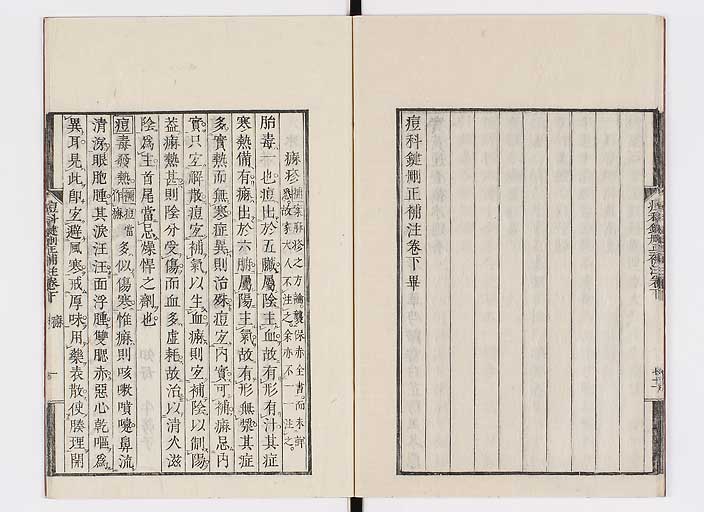 痘科鍵刪正補注卷下畢
痘科鍵刪正補注卷下
痲疹
胎毒一也痘出於五臟屬陰主血故有形有汁其症
寒熱備有痲出於六腑屬陽主氣故有形無漿其症
多實熱而無寒症異則治殊痘宜內實可補痲忌內
實只宜解散痘宜補氣以生血痲則宜補陰以制陽
益痲熱甚則陰分受傷而血多虛耗故治以清火滋
陰為主首尾當忌燥悍之劑也
痘毒發熱痘當作痲多似傷寒惟痲則咳嗽噴嚏鼻流
清涕眼胞腫其淚汪汪面浮腫雙腮赤惡心乾嘔為
異耳見此即宜避風寒戒厚味用藥表散使腠理開
痘科鍵刪正補注卷下 痲 一